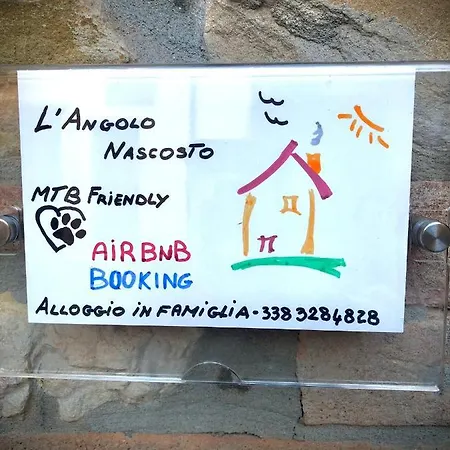 L'ANGOLO
NASCOSTO
MTB FRIENDLY
AIRBNB
BOOKING
ALLOGGIO IN FAMIGLIA - 338 3284828